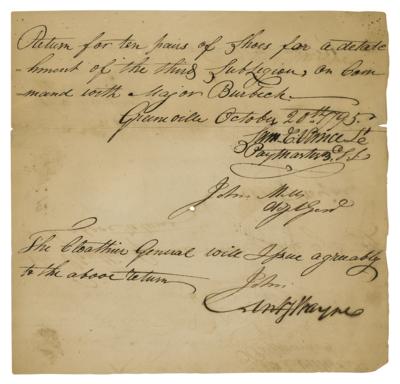 Return for ten pairs of Shoes for a detatc
hment of the third Sublegion, on Com
mand with Major Burbeck.
Greenville October 20th 1795
Lt
Paymaster 3d S L
John Mills
Adjt Genl
The Cloathier General will Issue agreeably
to the above return
John
Anty Wayne